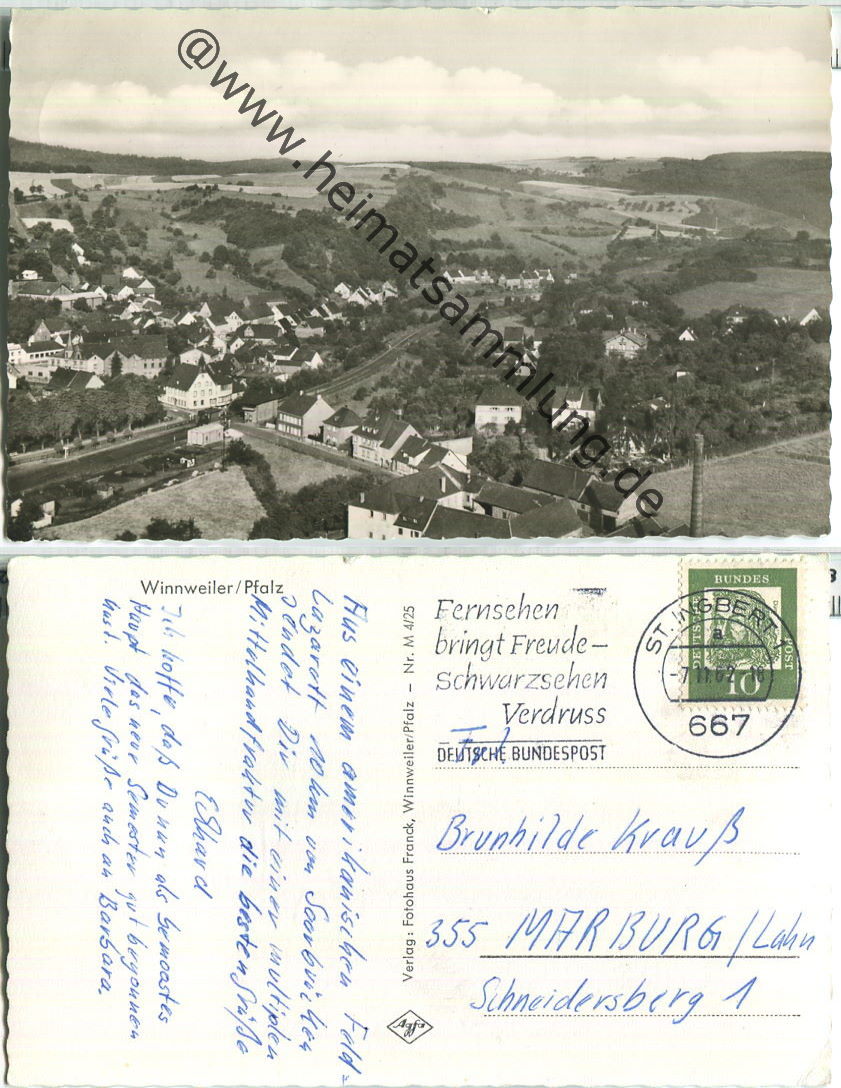 @www.heimatsammlung.de
Winnweiler/Pfalz
Aus einem amerikanischen Feld=
lazarett 10 km von Saarbrücken
sendet Dir mit einer multiplen
Mittelhandfraktur die besten Grüße
Ekhard
Ich hoffe, daß Du nun als bemoostes
Haupt das neue Semester gut begonnen
hast. Viele Grüße auch an Barbara.
Verlag: Fotohaus Franck, Winnweiler/Pfalz – Nr. M 4/25
Agfa
Fernsehen
bringt Freude –
Schwarzsehen
Verdruss
DEUTSCHE BUNDESPOST
ST. INGBERT 1
a
-7.11.62.-18
667
DEUTSCHE
BUNDES
POST
10
Frl.
Brunhilde Krauß
355 MARBURG/Lahn
Schneidersberg 1